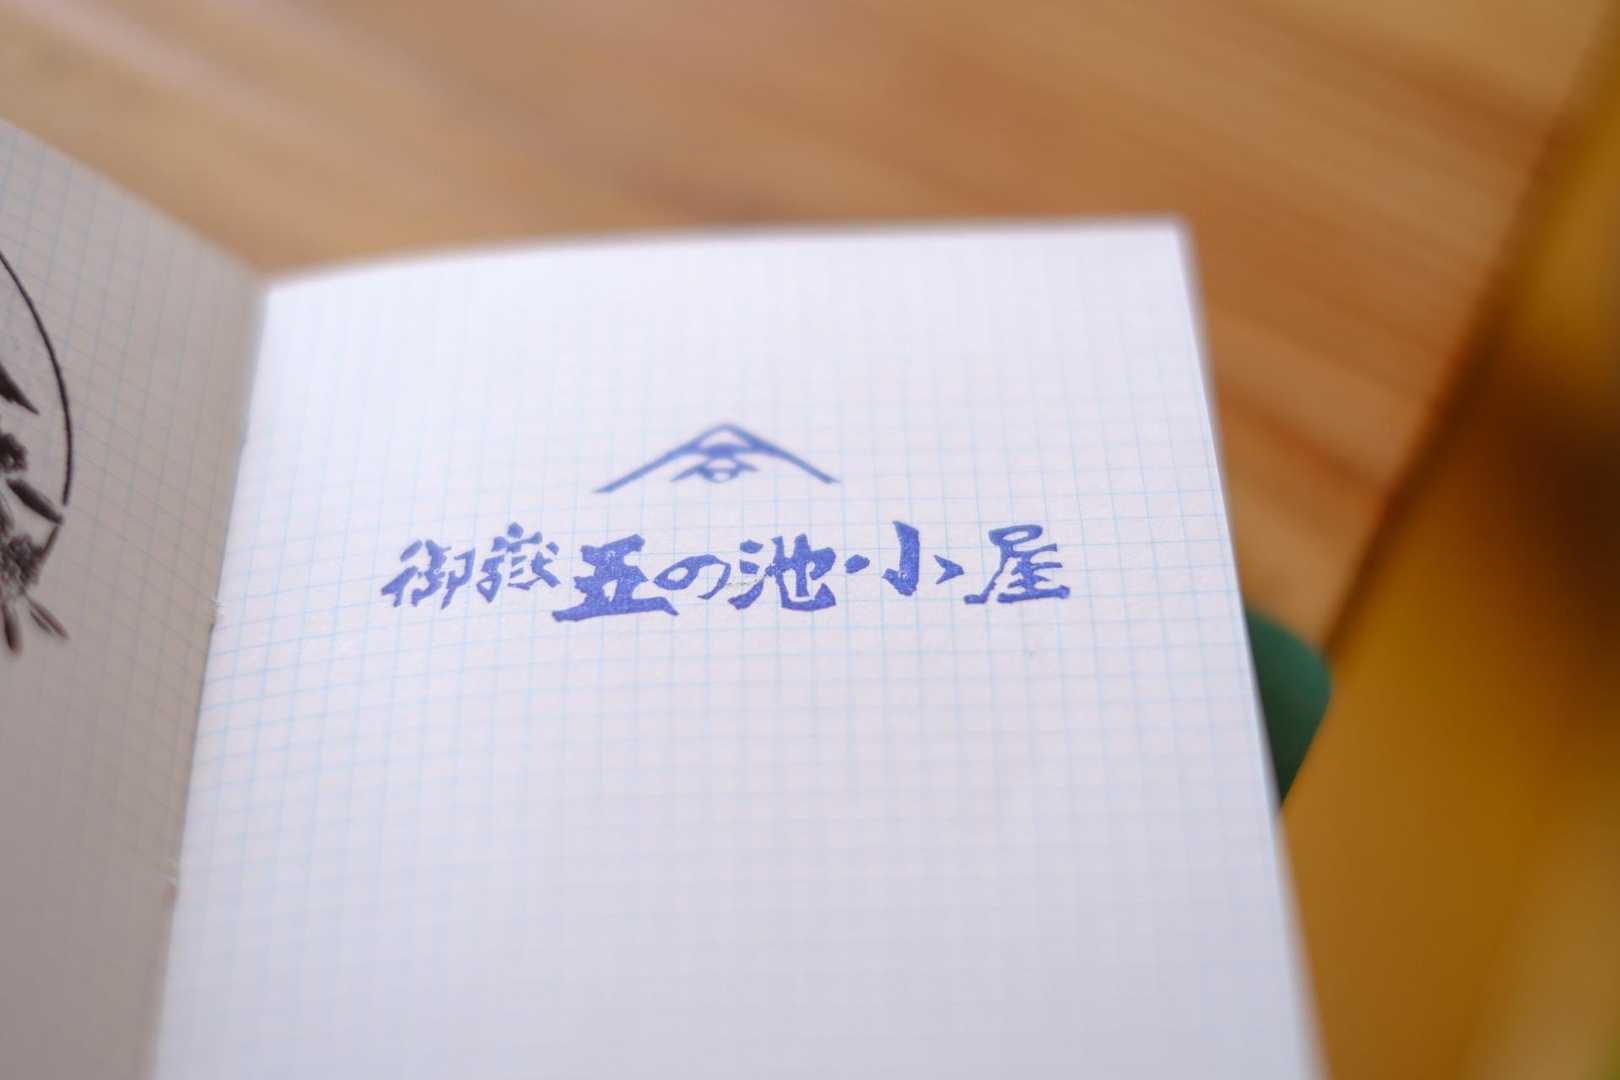 御嶽五の池小屋